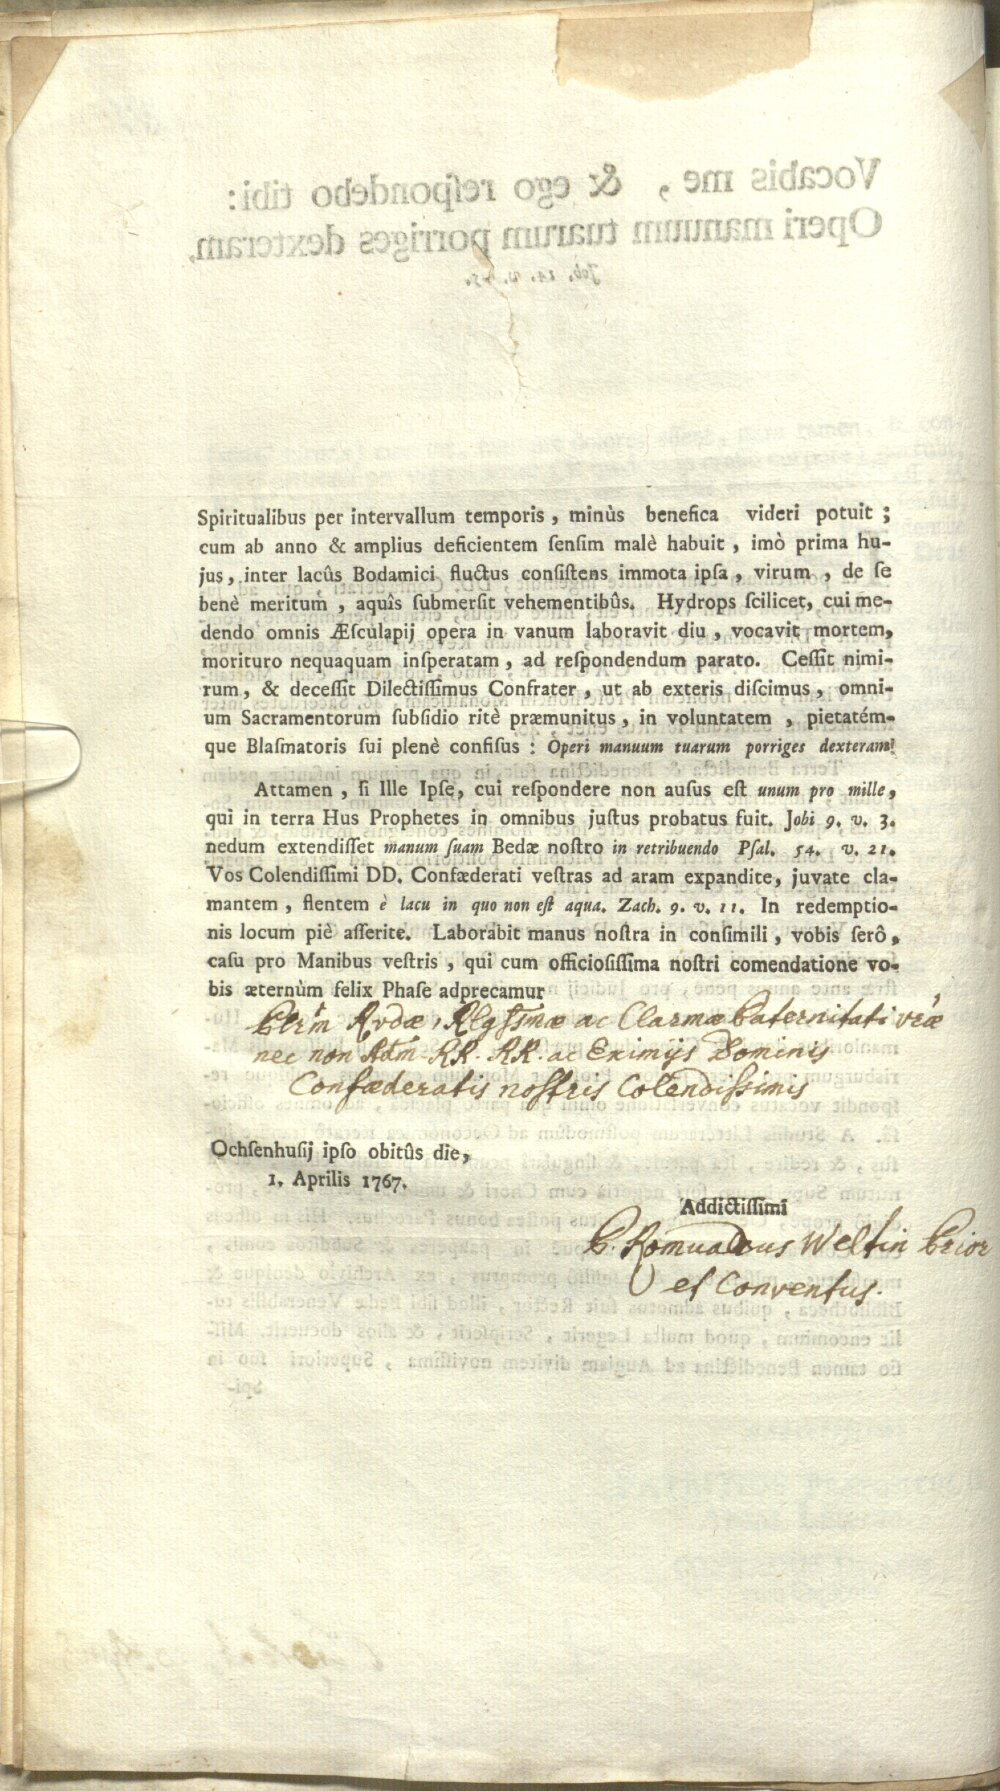 Spiritualibus per intervallum temporis , minùs benefica videri potuit ;
cum ab anno & amplius deficientem ſenſim malè habuit , imò prima hu-
jus , inter lacûs Bodamici fluctus conſiſtens immota ipſa , virum , de ſe
benè meritum , aquîs ſubmerſit vehementibûs. Hydrops ſcilicet, cui me-
dendo omnis Æſculapij opera in vanum laboravit diu , vocavit mortem,
morituro nequaquam inſperatam , ad reſpondendum parato. Ceſſit nimi-
rum, & deceſſit Dilectiſſimus Confrater , ut ab exteris diſcimus , omni-
um Sacramentorum ſubſidio ritè præmunitus , in voluntatem , pietatém-
que Blaſmatoris ſui plenè confiſus : Operi manuum tuarum porriges dexteram!
Attamen , ſi Ille Ipſe, cui reſpondere non auſus eſt unum pro mille,
qui in terra Hus Prophetes in omnibus juſtus probatus fuit. Jobi 9. v. 3.
nedum extendiſſet manum ſuam Bedæ noſtro in retribuendo Pſal. 54. v. 21.
Vos Colendiſſimi DD. Confæderati veſtras ad aram expandite, juvate cla-
mantem , flentem è lacu in quo non eſt aqua. Zach. 9. v. 11. In redemptio-
nis locum piè aſſerite. Laborabit manus noſtra in conſimili , vobis ſerô ,
caſu pro Manibus veſtris , qui cum officioſiſſima noſtri comendatione vo-
bis æternùm felix Phaſe adprecamur
Rvdæ, ac Clarmæ Paternitati vræ
nec non Adm. RR. RR. ac Eximijs Dominis
Confæderatis noſtris Colendiſſimis
Ochſenhuſij ipſo obitûs die,
1. Aprilis 1767.
Addictiſſimi
P. Romualdus Weltin Prior
et Conventus.